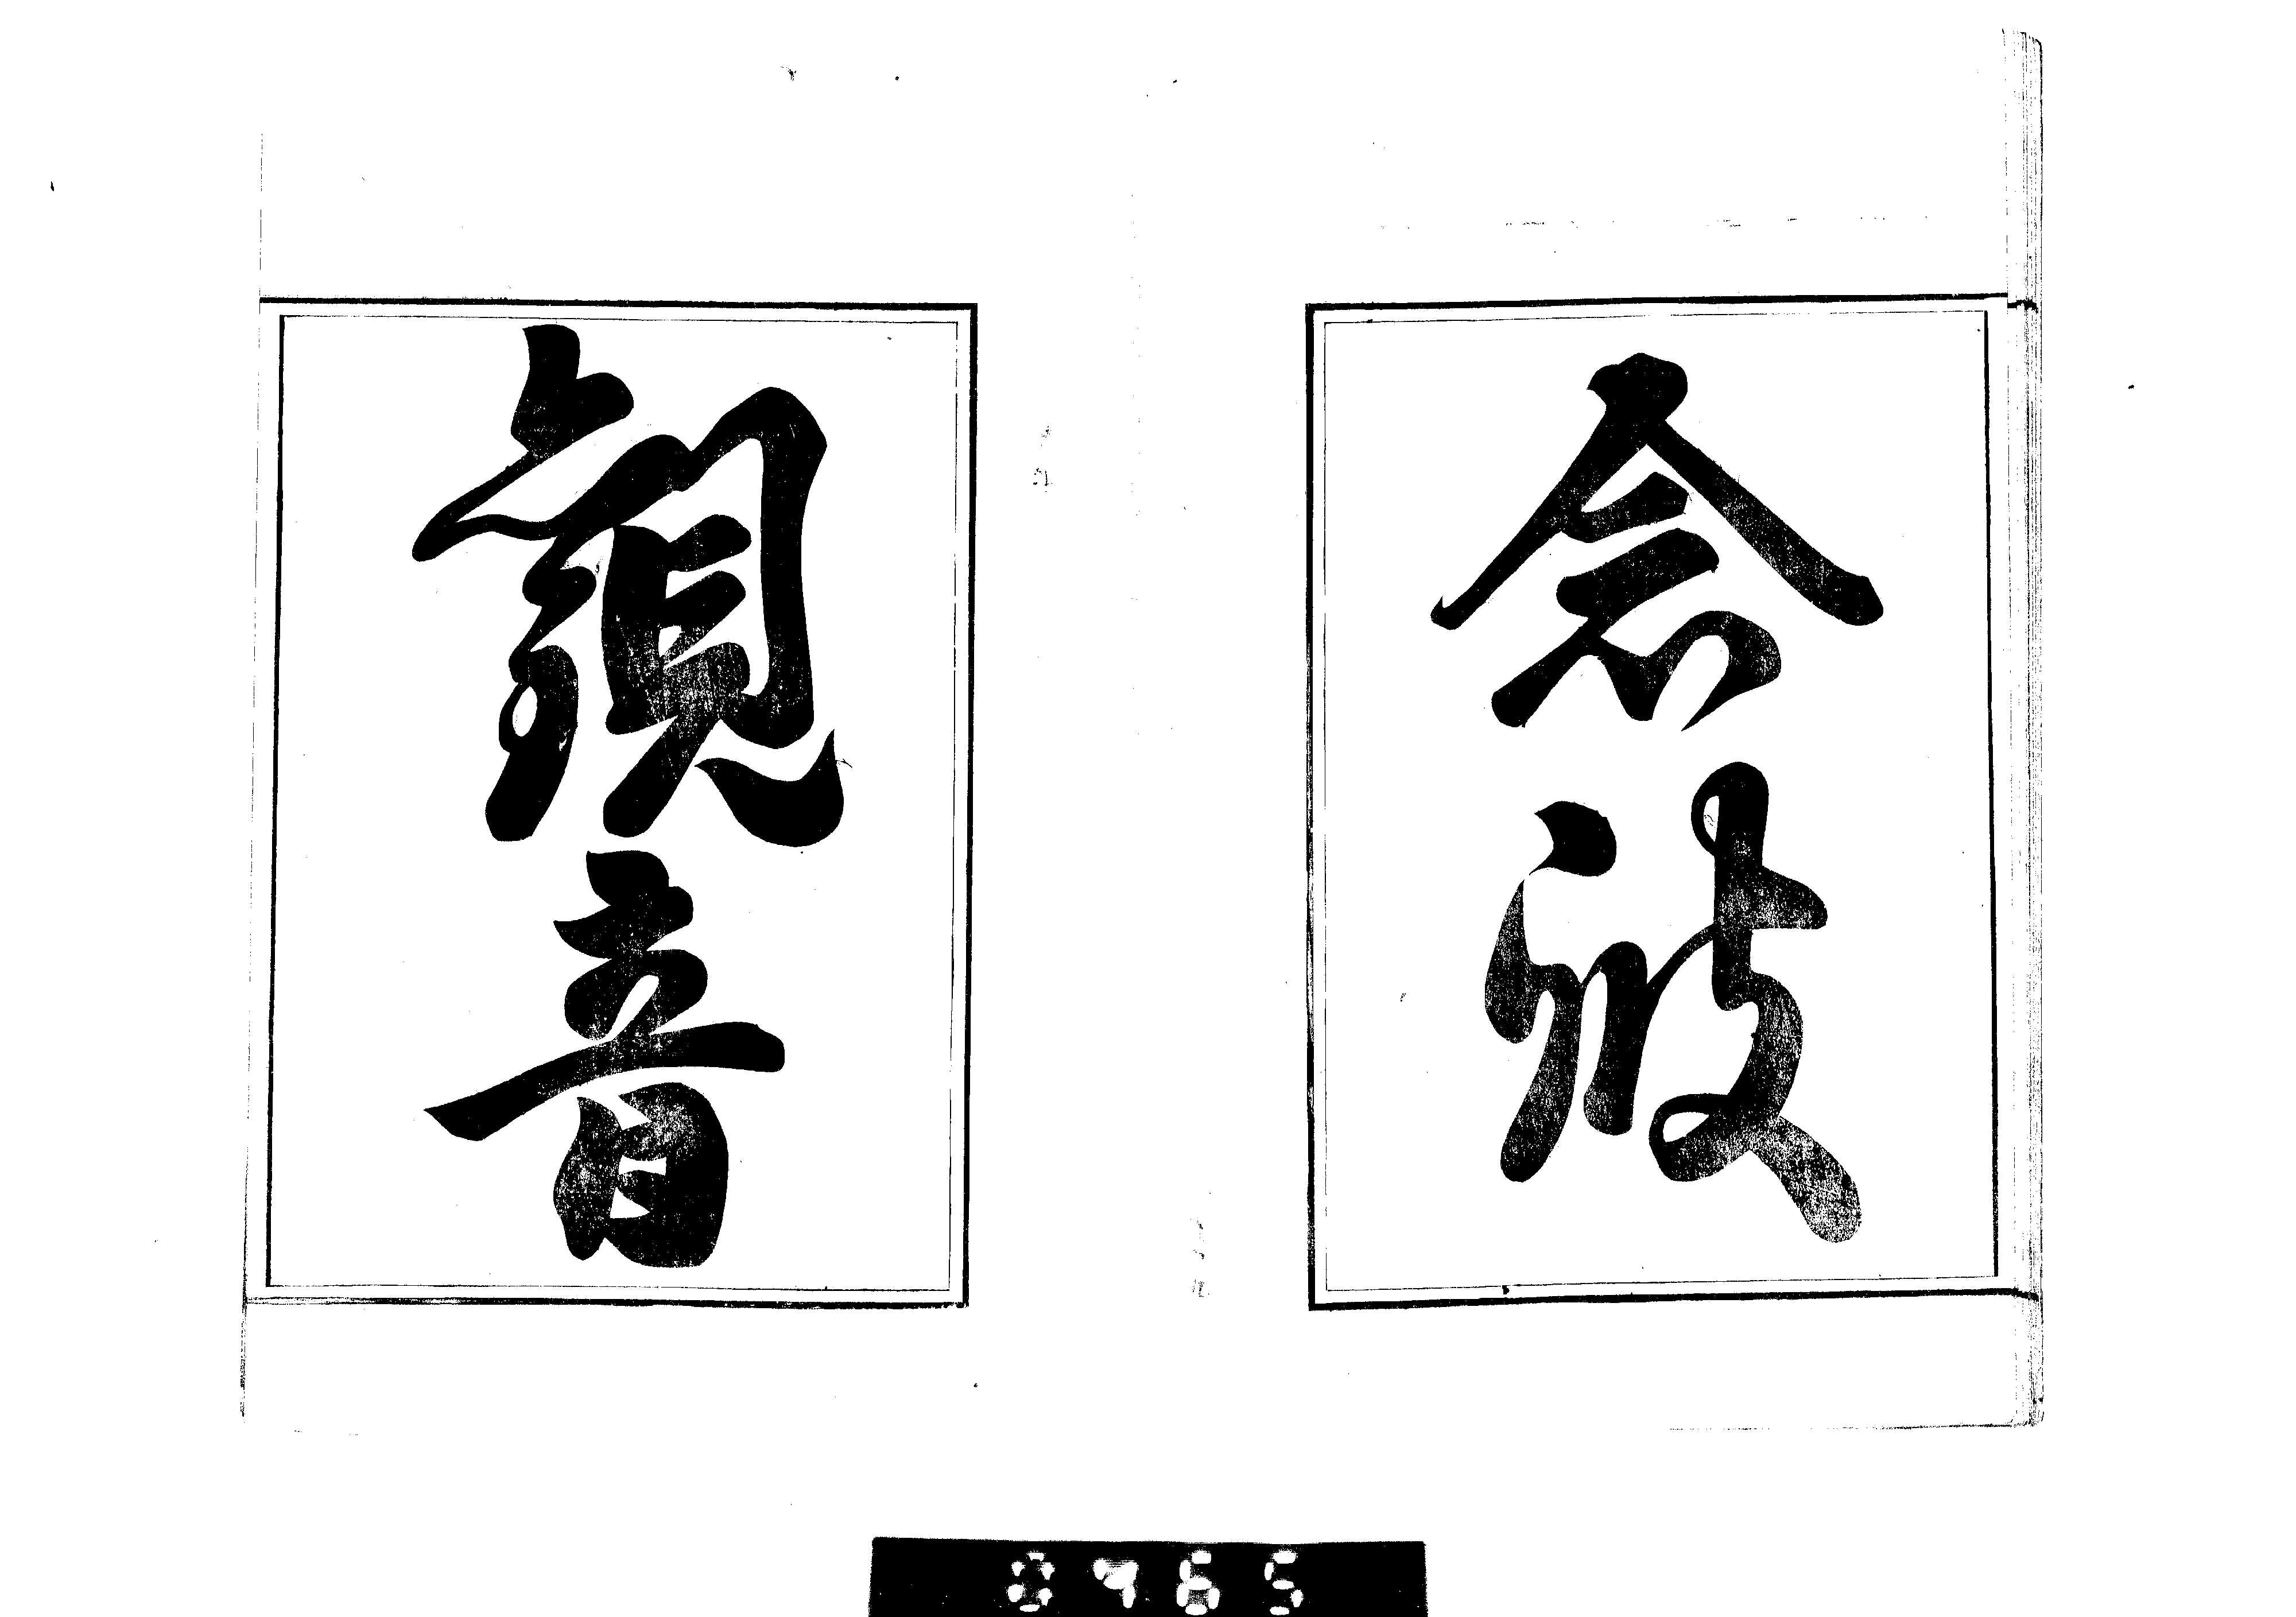 念彼
觀音
0765